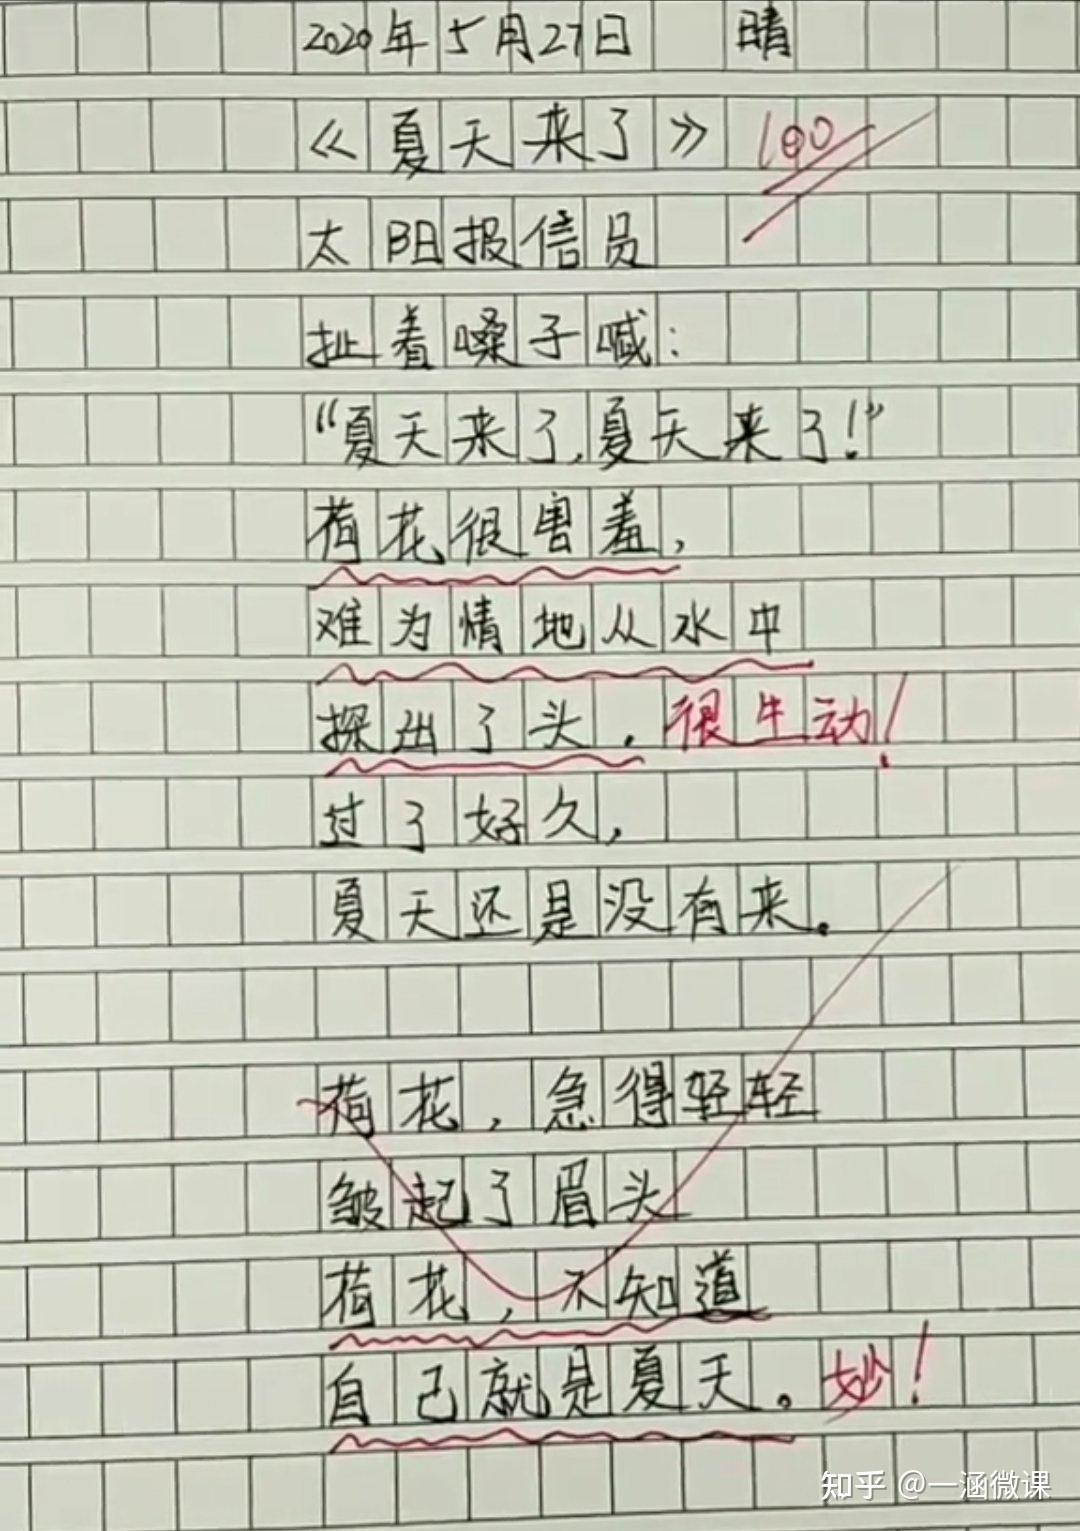 2020年5月27日 晴
《夏天来了》 100
太阳报信员
扯着嗓子喊:
“夏天来了,夏天来了!”
荷花很害羞,
难为情地从水中
探出了头. 很生动!
过了好久,
夏天还是没有来。
荷花,急得轻轻
皱起了眉头
荷花,不知道
自己就是夏天。妙!
知乎 @一涵微课